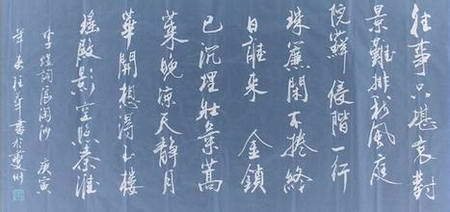 往事只堪哀對
景難排秋風庭
院蘚侵階一行
珠簾閑不捲終
日誰來 金鎖
已沉埋壯氣蒿
萊晚涼天靜月
華開想得玉樓
瑤殿影空照秦淮
李煜詞浪淘沙 庚寅
年 書於